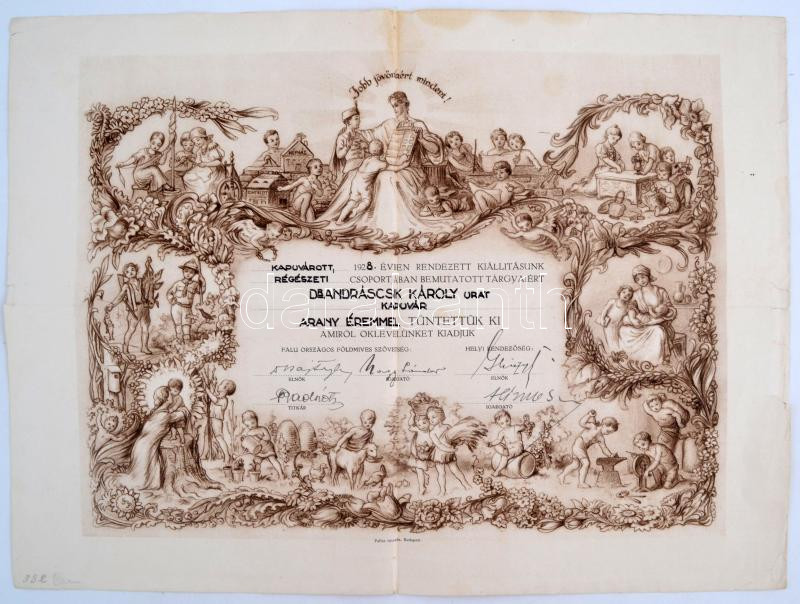 Jobb jövőnkért mindent!
KAPUVÁROTT, 1928. ÉVBEN RENDEZETT KIÁLLITÁSUNK
RÉGÉSZETI CSOPORTJÁBAN BEMUTATOTT TÁRGYAIÉRT
DR ANDRÁSCSIK KÁROLY URAT
KAPUVÁR
ARANY ÉREMMEL TÜNTETTÜK KI
AMIRŐL OKLEVELÜNKET KIADJUK
FALU ORSZÁGOS FÖLDMIVES SZÖVETSÉG: HELYI RENDEZŐSÉG:
ELNÖK IGAZGATÓ ELNÖK
TITKÁR IGAZGATÓ
Budapest.
darabanth